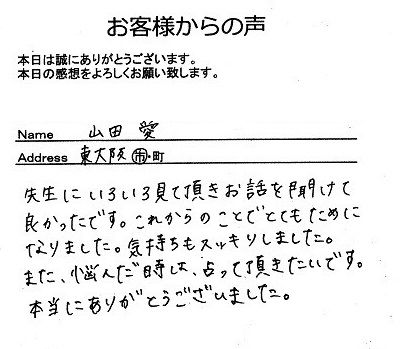 お客様からの声
本日は誠にありがとうございます。
本日の感想をよろしくお願い致します。
Name 山田 愛
Address 東大阪 市・町
先生にいろいろ見て頂きお話を聞けて
良かったです。これからのことでとてもために
なりました。気持ちもスッキリしました。
また、悩んだ時は、占って頂きたいです。
本当にありがとうございました。